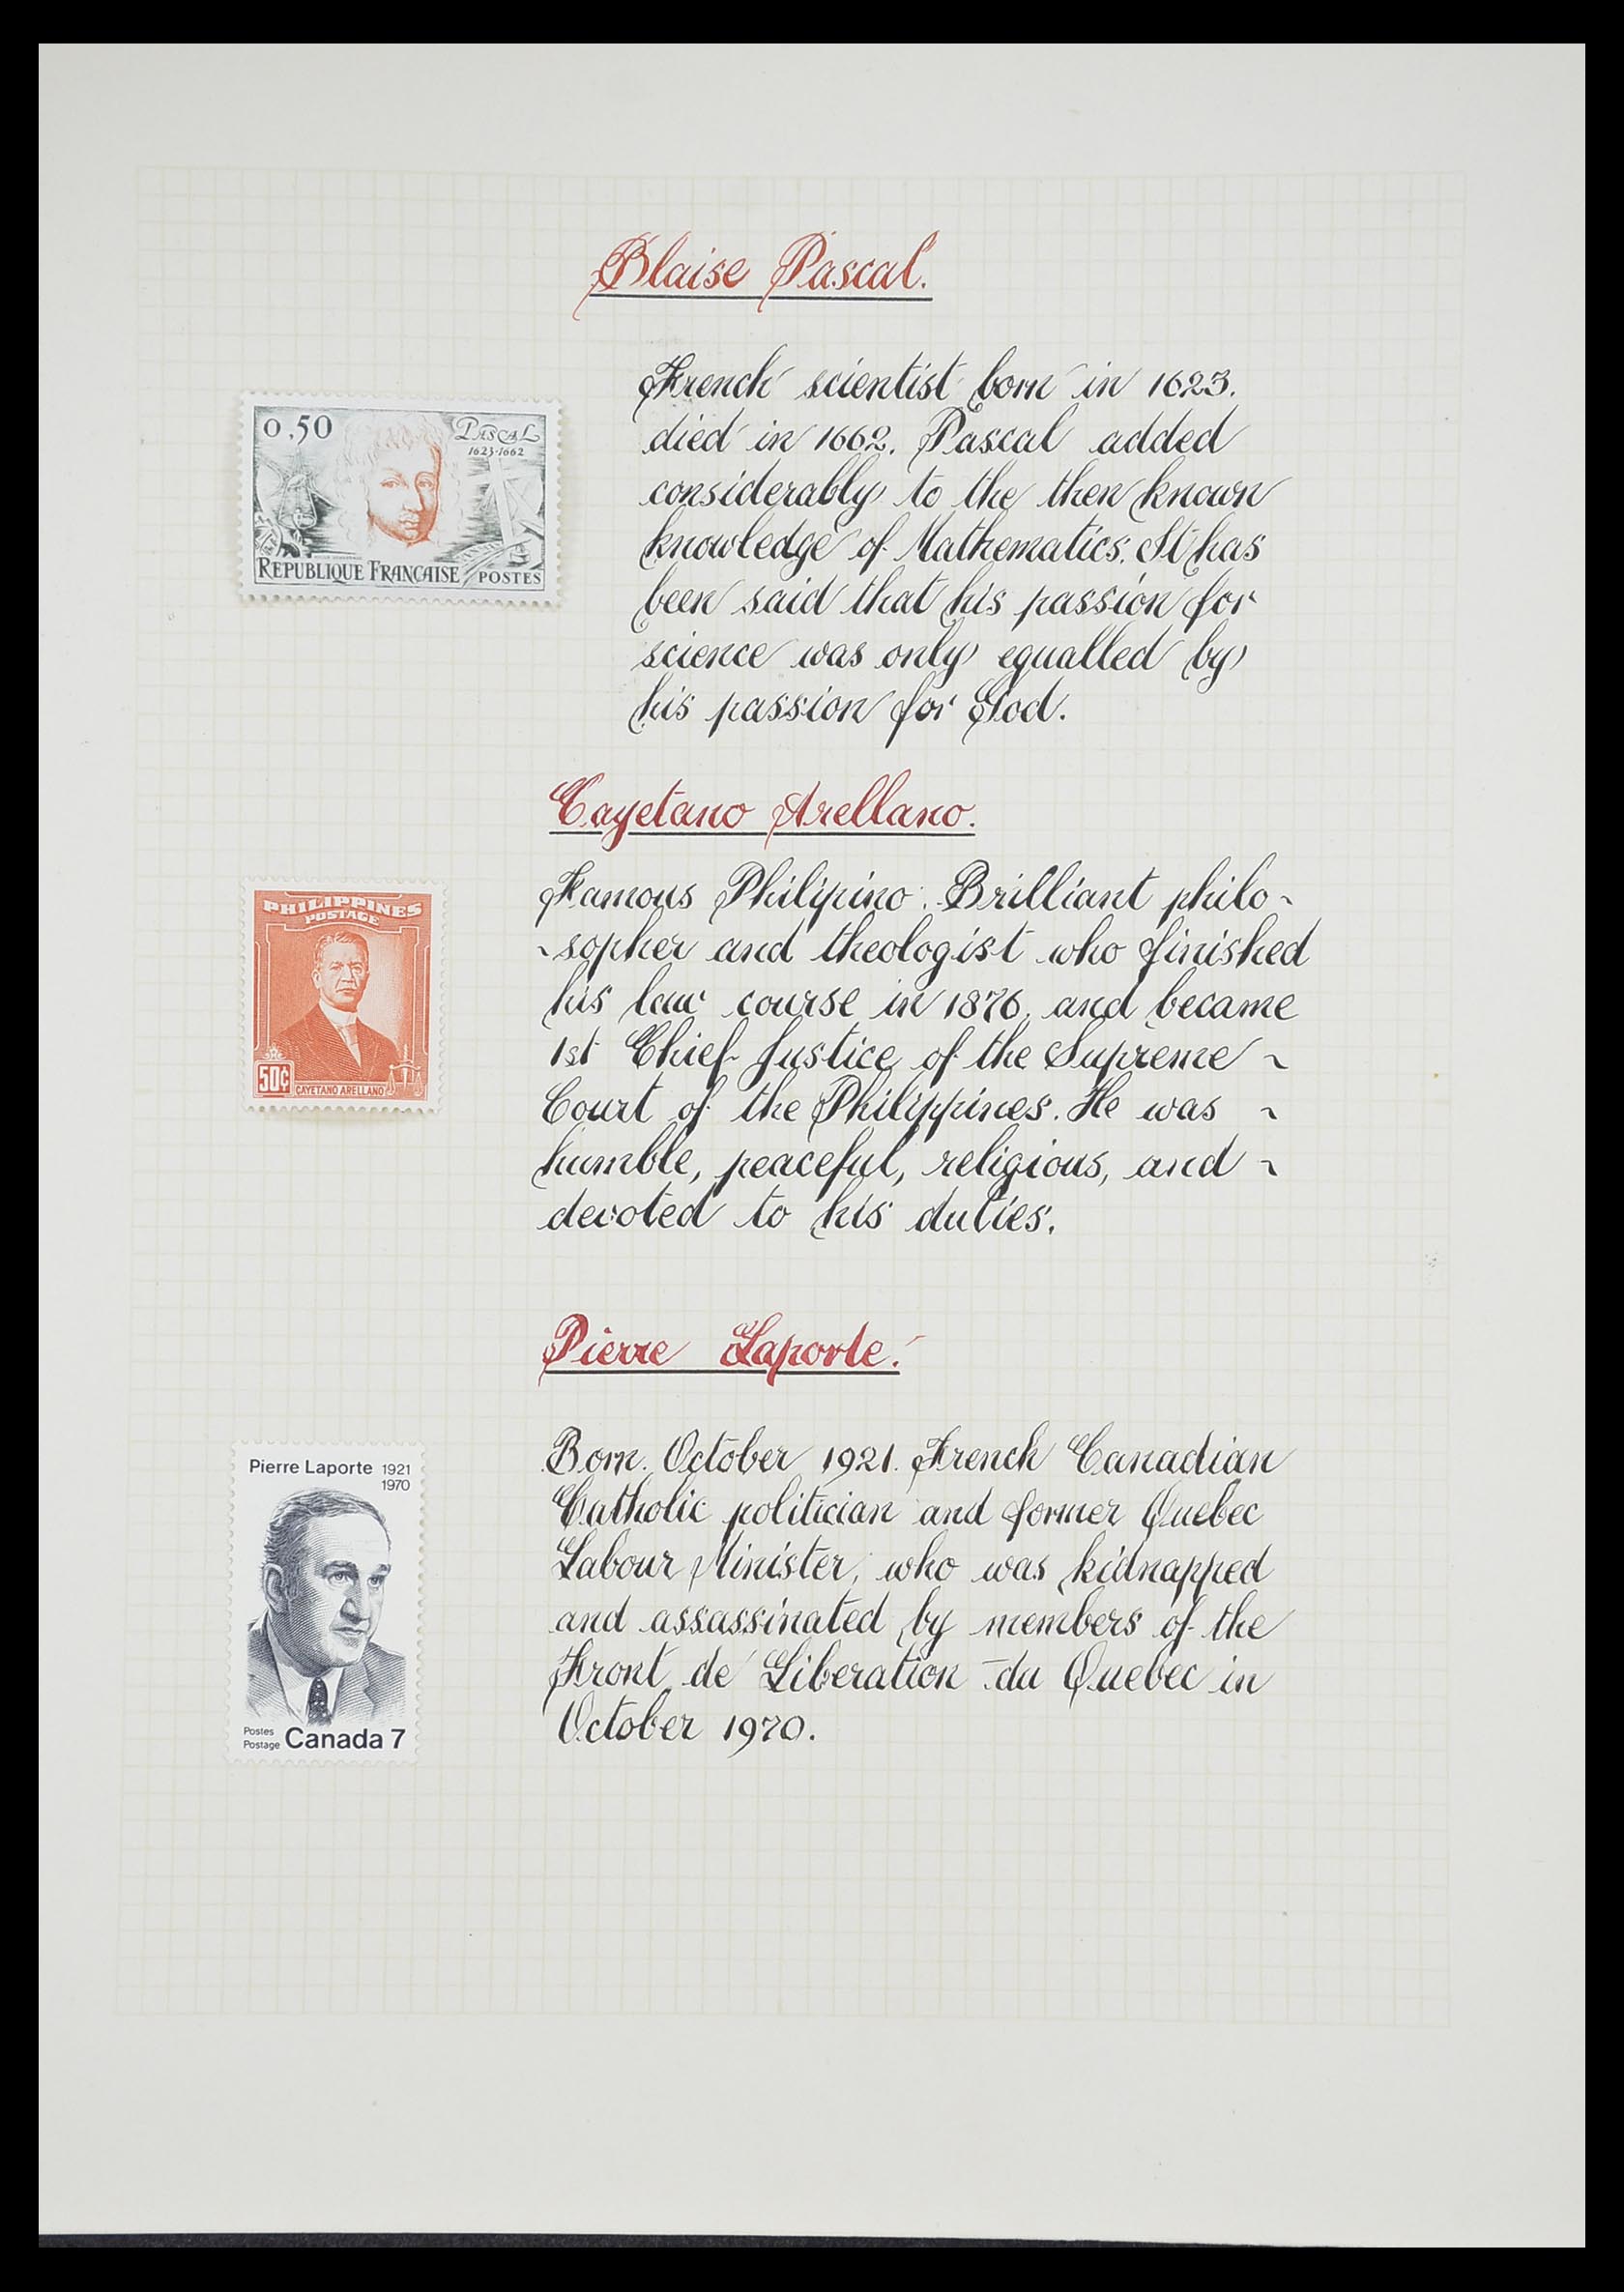 Blaise Pascal.
0,50
PASCAL
1623-1662
REPUBLIQUE FRANCAISE POSTES
French scientist born in 1623.
died in 1662. Pascal added
considerably to the then known
knowledge of Mathematics. It has
been said that his passion for
science was only equalled by
his passion for God.
Cayetano Arellano.
PHILIPPINES
POSTAGE
50c CAYETANO ARELLANO
Famous Philipino. Brilliant philo-
-sopher and theologist who finished
his law course in 1876, and became
1st Chief Justice of the Supreme ~
Court of the Philippines. He was ~
humble, peaceful, religious, and ~
devoted to his duties.
Pierre Laporte.
Pierre Laporte 1921
1970
Postes
Postage Canada 7
Born. October 1921. French Canadian
Catholic politician and former Quebec
Labour Minister, who was kidnapped
and assassinated by members of the
Front de Liberation -du Quebec in
October 1970.